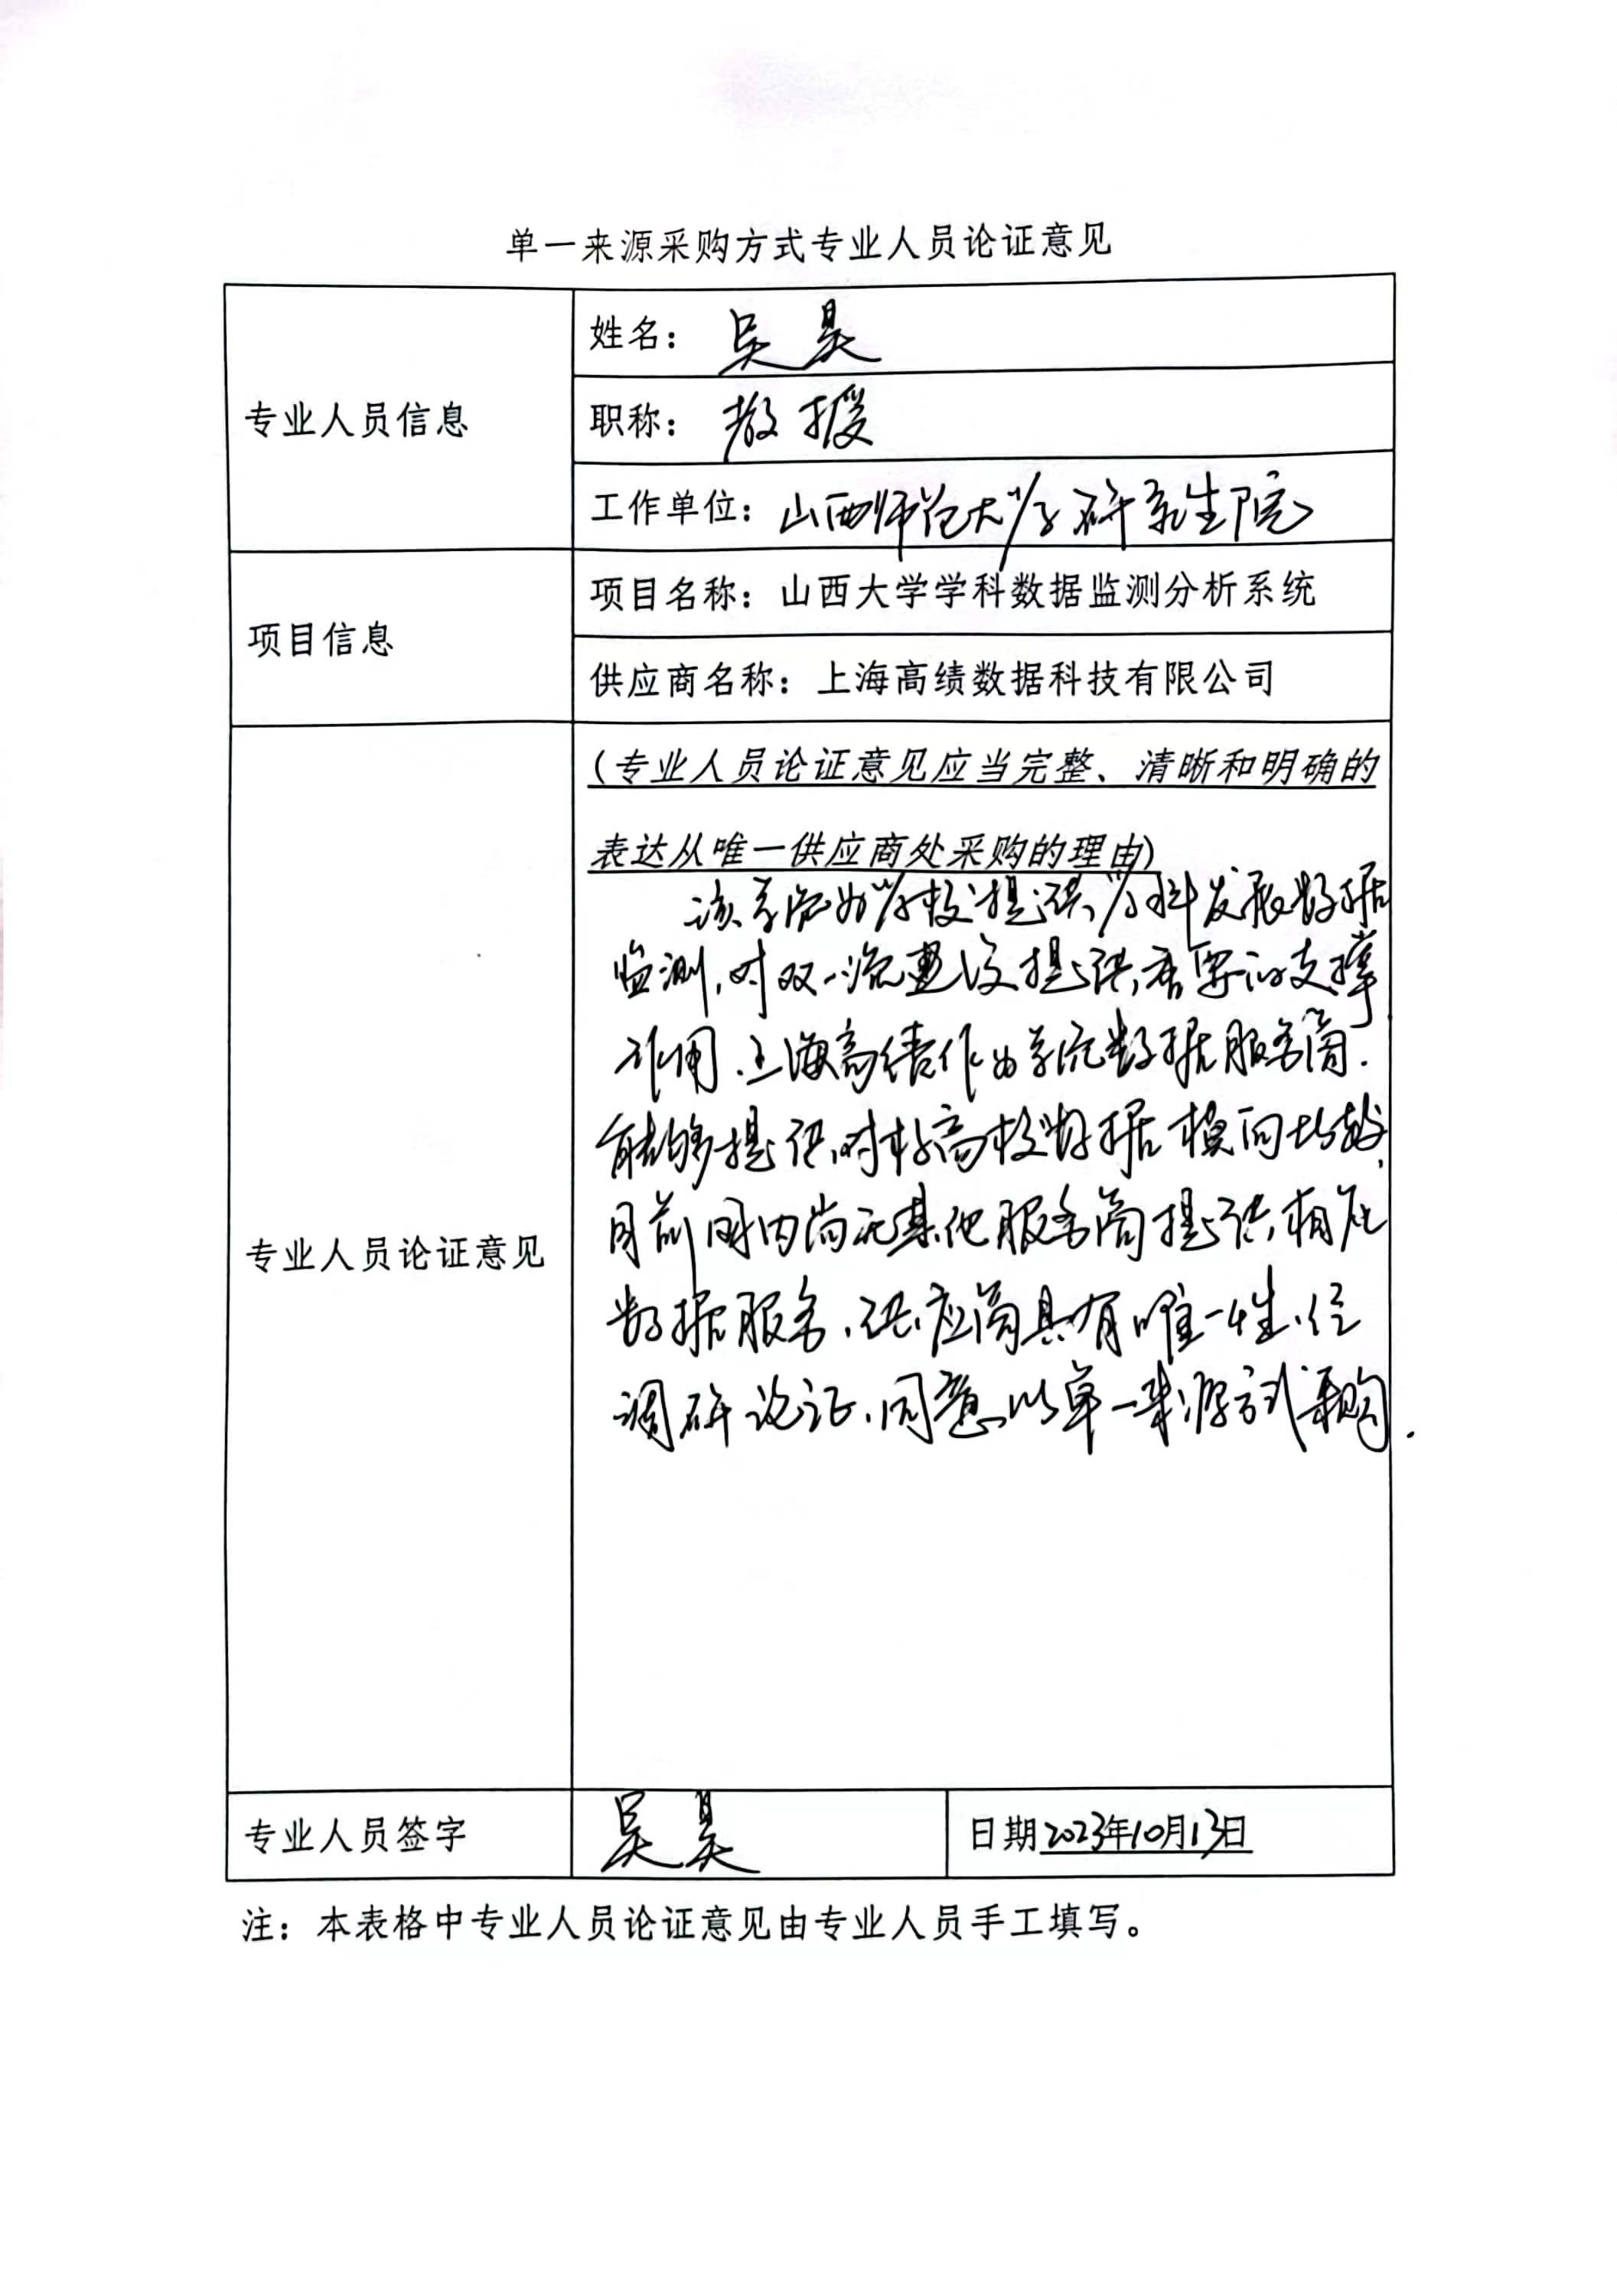 单一来源采购方式专业人员论证意见
专业人员信息
姓名：吴昊
职称：教授
工作单位：山西师范大学研究生院
项目信息
项目名称：山西大学学科数据监测分析系统
供应商名称：上海高绩数据科技有限公司
专业人员论证意见
(专业人员论证意见应当完整、清晰和明确的
表达从唯一供应商处采购的理由)
该系统为学校提供学科发展数据
监测，对双一流建设提供重要的支撑
作用.上海高绩作为系统数据服务商.
能够提供对标高校数据横向比较,
目前国内尚无其他服务商提供相应
数据服务.供应商具有唯一性.经
调研论证.同意以单一来源方式采购.
专业人员签字
吴昊
日期2023年10月13日
注：本表格中专业人员论证意见由专业人员手工填写。